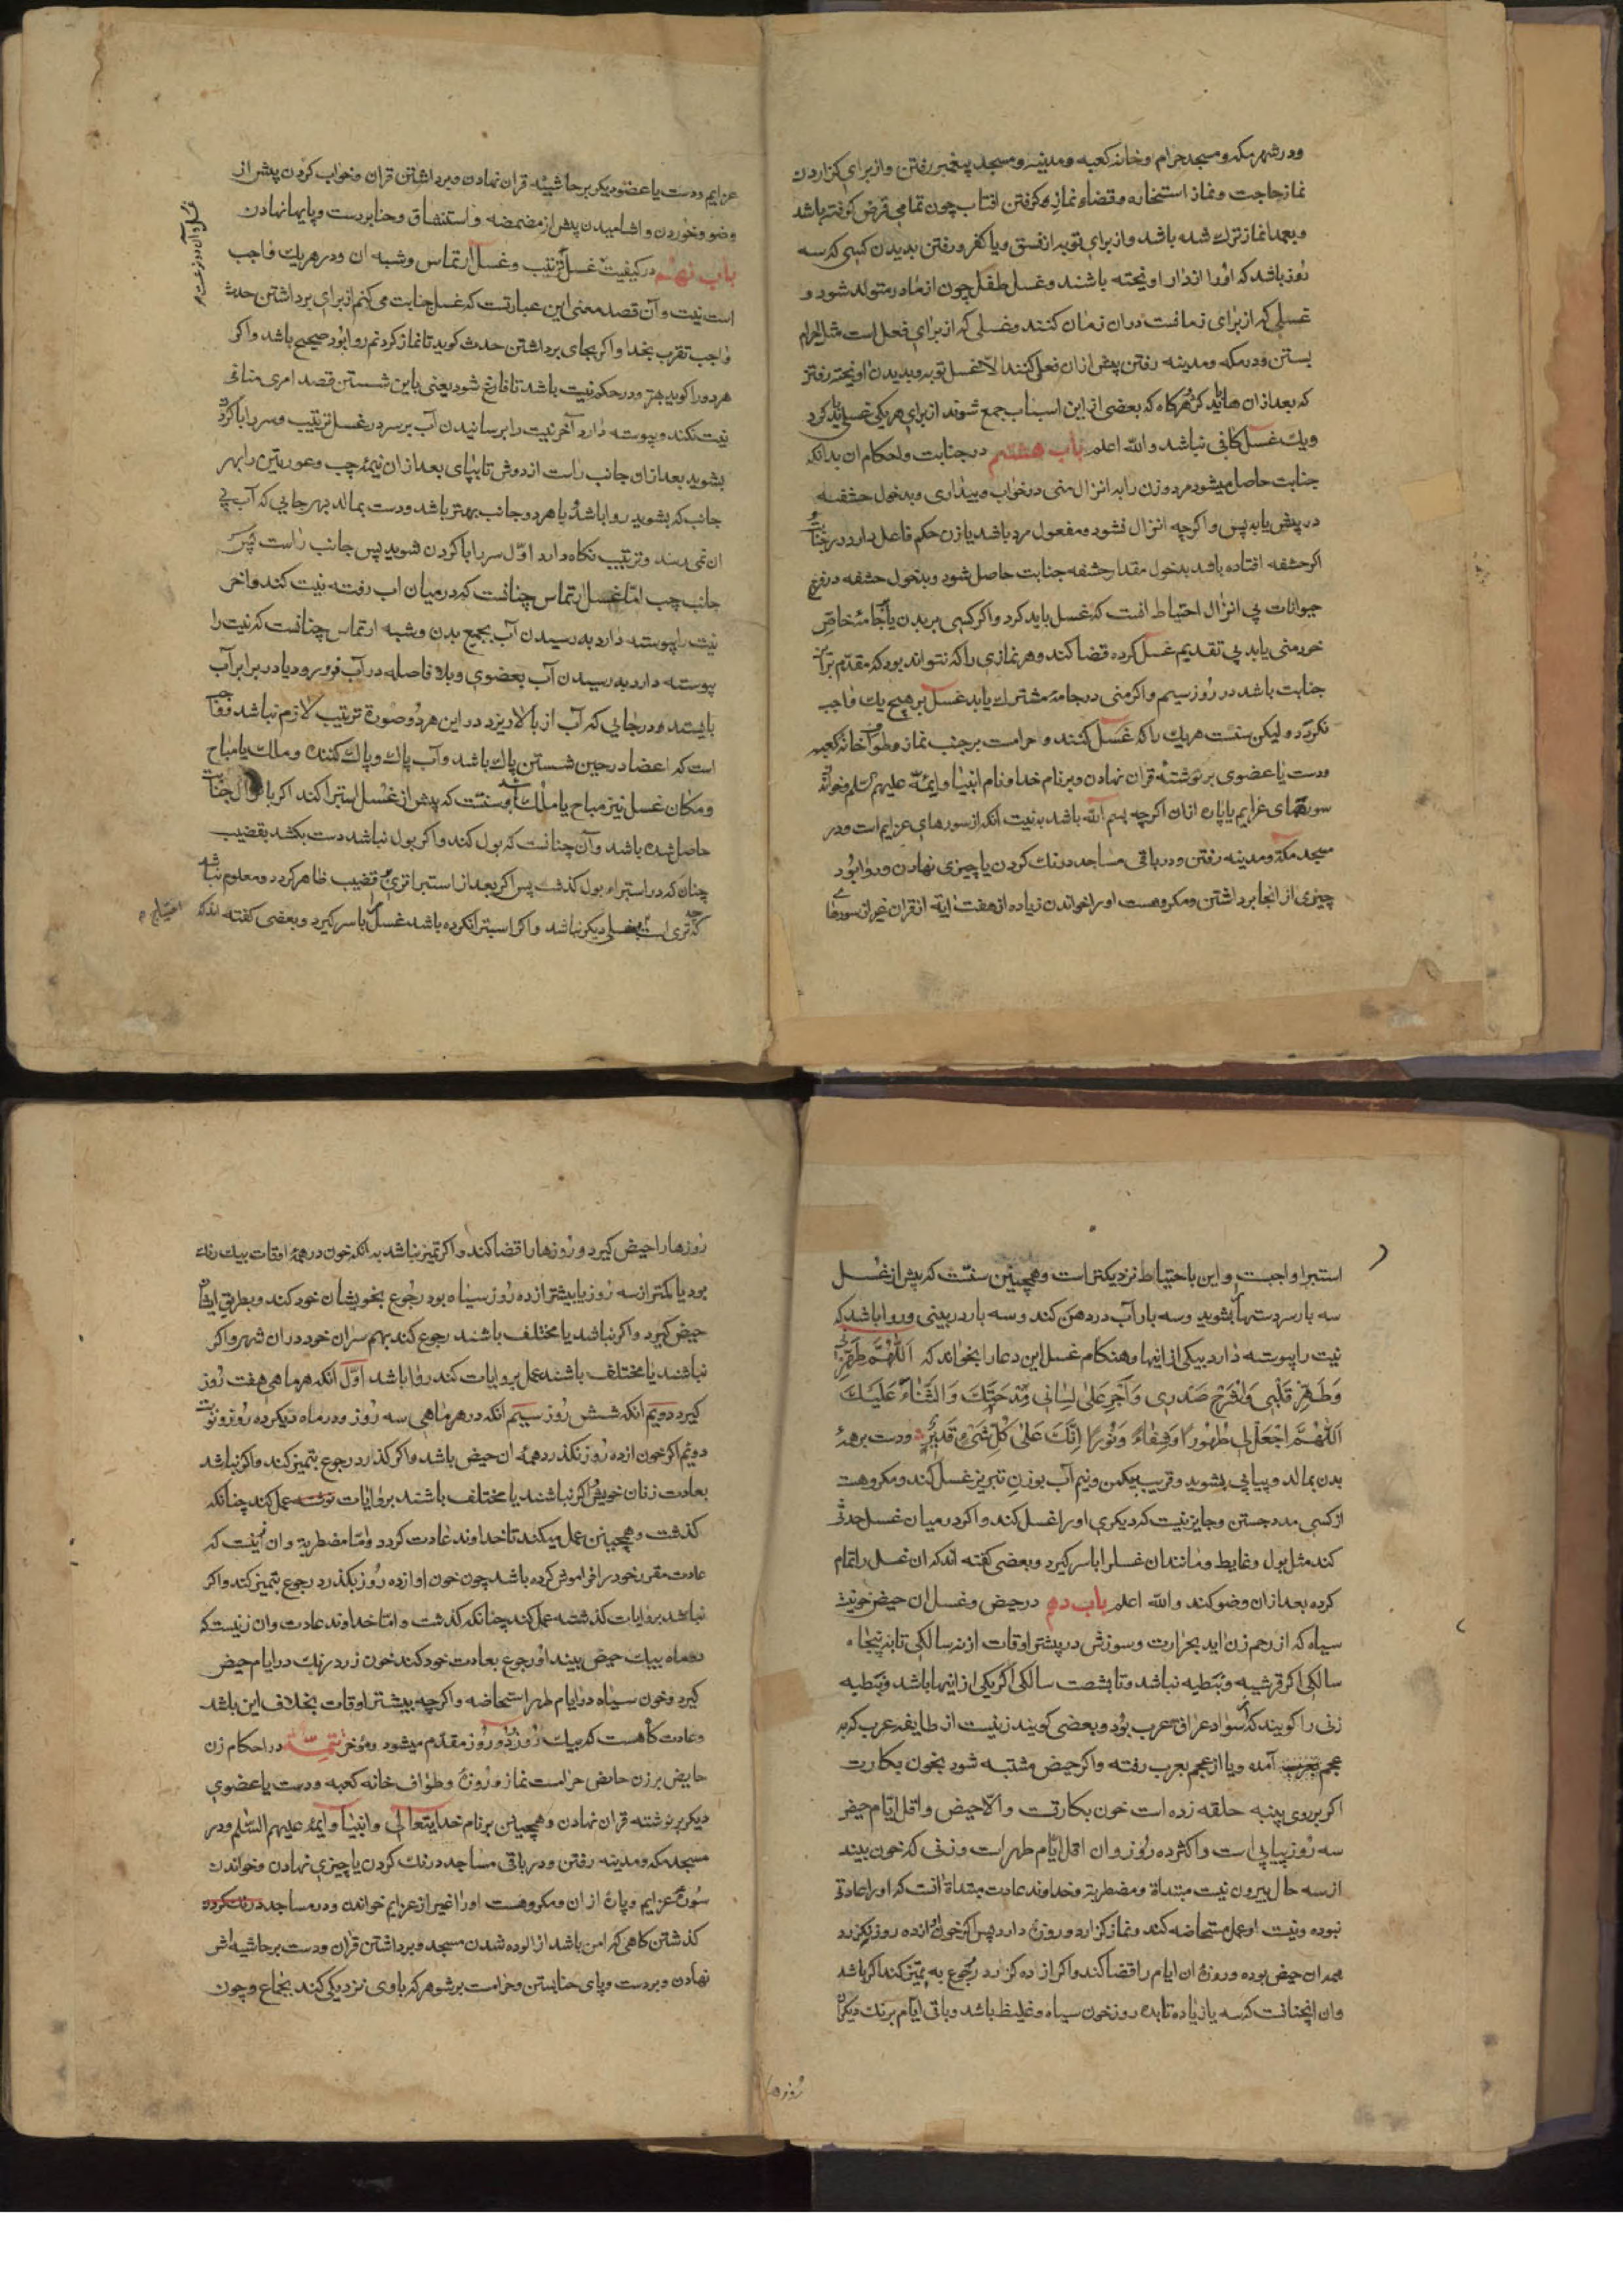 ودر شهر مکه ومسجد حرام وخانه کعبه ومدینه ومسجد پیغمبر رفتن واز برای کزاردن
نماز حاجت ونماز استخاره وقضاء نماز کرفتن افتاب چون تمامی قرص کرفته باشد
وبعمدا نماز ترک شده باشد واز برای توبه از فسق ویا کفر ورفتن بدیدن کسی که سه
روز باشد که اورا از دار اویخته باشند وغسل طفل چون از مادر متولد شود و
غسلی که از برای زمانست دران زمان کنند وغسلی که از برای فعل است مثل احرام
بستن ودر مکه ومدینه رفتن پیش ازان فعل کنند الا غسل توبه وبدیدن اویخته رفتن
که بعد ازان هرکاه که بعضی از این اسباب جمع شوند از برای هر یکی غسلی باید کرد
ویک غسل کافی نباشد والله اعلم باب هشتم در جنابت واحکام ان بدانکه
جنابت حاصل میشود مرد وزن را به انزال منی در خواب وبیداری وبدخول حشفه
در پیش یا به پس واکرچه انزال نشود ومفعول مرد باشد یا زن حکم فاعل دارد در جنابت
اکر حشفه افتاده باشد بدخول مقدار حشفه جنابت حاصل شود وبدخول حشفه در فرج
حیوانات بی انزال احتیاط انست که غسل باید کرد واکر کسی بر بدن یا جامهٔ خاص
خود منی یابد بی تقدیم غسل کرده قضا کند وهر نمازی را که نتواند بود که مقدم بران
جنابت باشد در روز سیم واکر منی در جامهٔ مشترک یابد غسل بر هیچ یک واجب
نکردد ولیکن سنت هر یک را که غسل کنند وحرامست بر جنب نماز وطواف خانه کعبه
ودست یا عضوی بر نوشتهٔ قران نهادن وبر نام خدا ونام انبیا وایمه علیهم السلم وخواندن
سورهای عزایم یا پاره ازان اکرچه بسم الله باشد به نیت انکه از سورهای عزایم است ودر
مسجد مکه ومدینه رفتن ودر باقی مساجد درنک کردن یا چیزی نهادن وروا بود
چیزی از انجا برداشتن ومکروهست اورا خواندن زیاده از هفت ایة از قران غیر از سورهای
عزایم ودست یا عضو دیکر بر حاشیهٔ قران نهادن وبرداشتن قران وخواب کردن پیش از
وضو وخوردن واشامیدن پیش از مضمضه واستنشاق وحنا بر دست وپایها نهادن
باب نهم در کیفیت غسل ترتیب وغسل ارتماس وشبه ان ودر هر یک واجب
است نیت وآن قصد معنی این عبارتست که غسل جنابت می کنم از برای برداشتن حدث
واجب تقرب بخدا واکر بجای برداشتن حدث کوید تا نماز کردنم روا بود صحیح باشد واکر
هر دورا کوید بهتر ودر حکم نیت باشد تا فارغ شود یعنی باین شستن قصد امری منافی
نیت نکند وپیوسته دارد آخر نیت را برسانیدن آب بر سر در غسل ترتیب وسر را با کردن
بشوید بعد ازان جانب راست از دوش تا بپای بعد ازان نیمهٔ چپ وعورتین را بهر
جانب که بشوید روا باشد یا هر دو جانب بهتر باشد ودست بمالد بهر جایی که آب بی
ان نمی رسد وترتیب نکاه دارد اول سر را با کردن شوید پس جانب راست پس
جانب چپ اما غسل ارتماس چنانست که در میان اب رفته نیت کند واخر
نیت را پیوسته دارد به رسیدن آب بجمیع بدن وشبه ارتماس چنانست که نیت را
پیوسته دارد به رسیدن آب بعضوی وبلا فاصله در آب فرو رود یا در برابر آب
بایستد ودر جایی که آب از بالا ریزد در این هر دو صورة ترتیب لازم نباشد وواجب
است که اعضا در حین شستن پاک باشد وآب پاک وپاک کننده وملک یا مباح
ومکان غسل نیز مباح یا ملک باشد وسنت که پیش از غسل استبرا کند اکر بانزال جنابت
حاصل شده باشد وآن چنانست که بول کند واکر بول نباشد دست بکشد بقضیب
چنان که در استبراء بول کذشت پس اکر بعد از استبرا تری از قضیب ظاهر کردد ومعلوم نباشد
که چه تری است غسلی دیکر نباشد واکر استبرا نکرده باشد غسل را با سر کیرد وبعضی کفته اند که
استبرا واجبست واین باحتیاط نزدیکتر است وهمچنین سنت که پیش از غسل
سه بار سر دستها بشوید وسه بار آب در دهن کند وسه بار در بینی وروا باشد که
نیت را پیوسته دارد بیکی از اینها وهنکام غسل این دعا را بخواند که اللهم طهرنی
وطهر قلبی واشرح صدری واجر علی لسانی مدحتک والثناء علیک
اللهم اجعله لی طهورا وشفاء ونورا انک علی کل شیء قدیر ودست بر همهٔ
بدن بمالد وپیاپی بشوید وقریب بیکمن ونیم آب بوزن تبریز غسل کند ومکروهست
از کسی مدد جستن وجایز نیست که دیکری اورا غسل کند واکر در میان غسل حدثی
کند مثل بول وغایط ومانند ان غسل را با سر کیرد وبعضی کفته اند که ان غسل را تمام
کرده بعد ازان وضو کند والله اعلم باب دهم در حیض وغسل ان حیض خونیست
سیاه که از رحم زن اید بحرارت وسوزش در بیشتر اوقات از نه سالکی تا به پنجاه
سالکی اکر قرشیه ونبطیه نباشد وتا بشصت سالکی اکر یکی از اینها باشد ونبطیه
زنی را کویند که از سواد عراق عرب بود وبعضی کویند زنیست از طایفه عرب که به
عجم آمده ویا از عجم بعرب رفته واکر حیض مشتبه شود بخون بکارت
اکر بر روی پنبه حلقه زده است خون بکارتست والا حیض واقل ایام حیض
سه روز پیاپی است واکثر ده روز وان اقل ایام طهر است وزنی که خون بیند
از سه حال بیرون نیست مبتداة ومضطربة وخداوند عادت مبتداة انست که اورا عادتی
نبوده ونیست او عمل مستحاضه کند ونماز کزارد وروزه دارد پس اکر خون از ده روز نکزرد
همه ان حیض بوده وروزهٔ ان ایام را قضا کند واکر از ده کزرد رجوع به تمیز کند اکر باشد
وان انچنانست که سه یا زیاده تا بده روز خون سیاه وغلیظ باشد وباقی ایام برنک دیکر
روزها
روزها را حیض کیرد وروزها را قضا کند واکر تمیز نباشد به انکه خون در همهٔ اوقات بیک رنک
بود یا کمتر از سه روز یا بیشتر از ده روز سیاه بود رجوع بخویشان خود کند وبطریق ایشان
حیض کیرد واکر نباشد یا مختلف باشند رجوع کند بهم سران خود دران شهر واکر
نباشند یا مختلف باشند عمل بروایات کند روا باشد اول انکه هر ماهی هفت روز
کیرد دویم انکه شش روز سیم انکه در هر ماهی سه روز ودر ماه دیکر ده روز ونوبت
دویم اکر خون از ده روز نکذرد همه ان حیض باشد واکر کذارد رجوع بتمیز کند واکر نباشد
بعادت زنان خویش اکر نباشند یا مختلف باشند بروایات عمل کند چنانکه
کذشت وهمچنین عمل میکند تا خداوند عادت کردد واما مضطربة وان زنیست که
عادت مقرر خود را فراموش کرده باشد چون خون او از ده روز بکذرد رجوع بتمیز کند واکر
نباشد بروایات کذشته عمل کند چنانکه کذشت واما خداوند عادت وان زنیست که
دو ماه بیک حیض بیند او رجوع بعادت خود کند خون زرد رنک در ایام حیض
کیرد وخون سیاه در ایام طهر استحاضه واکرچه بیشتر اوقات بخلاف این باشد
وعادت کاهست که بیک روز ودو روز مقدم میشود ومؤخر تتمه در احکام زن
حایض بر زن حایض حرامست نماز وروزه وطواف خانه کعبه ودست یا عضوی
دیکر بر نوشته قران نهادن وهمچنین بر نام خدایتعالی وانبیا وایمه علیهم السلم ودر
مسجد مکه ومدینه رفتن ودر باقی مساجد درنک کردن یا چیزی نهادن وخواندن
سورهٔ عزایم وپارهٔ از ان ومکروهست اورا غیر از عزایم خواندن ودر مساجد درنک کرده
کذشتن کاهی که امن باشد از الوده شدن مسجد وبرداشتن قران ودست بر حاشیه اش
نهادن وبر دست وپای حنا بستن وحرامست بر شوهر که باوی نزدیکی کند بجماع وچون